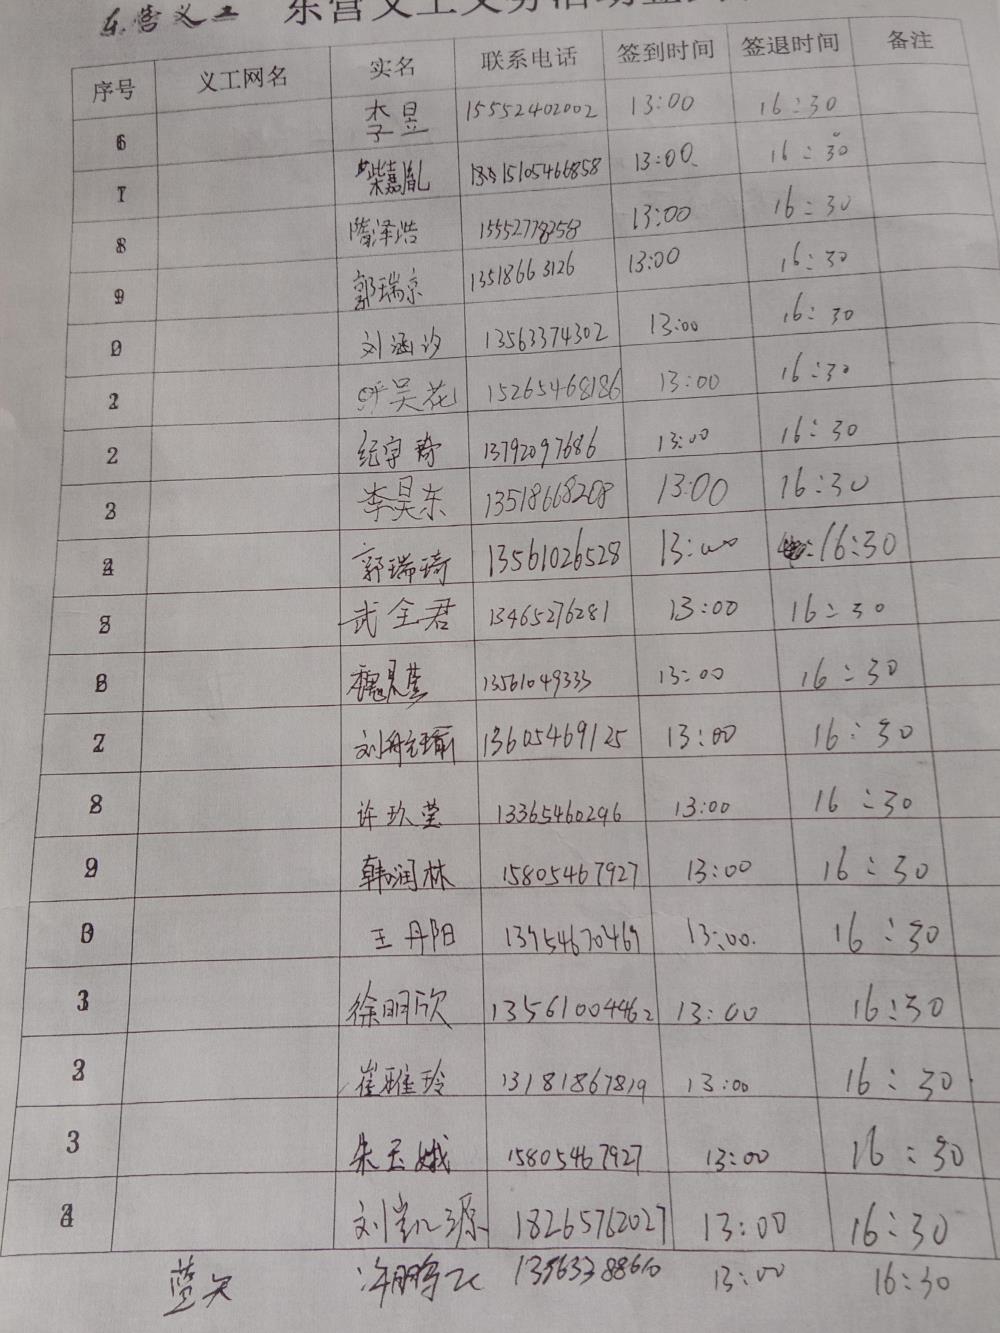 东营义工 东营义工义务活动
序号 义工网名 实名 联系电话 签到时间 签退时间 备注
6 李昱 15552402002 13:00 16:30
柴嘉胤 15105466858 13:00 16:30
8 隋泽浩 15552778258 13:00 16:30
9 郭瑞京 13518663126 13:00 16:30
刘涵汐 13563374302 13:00 16:30
吴花 15265468186 13:00 16:30
2 纪宇琦 13792097686 13:00 16:30
3 李昊东 13518668208 13:00 16:30
郭瑞琦 13561026528 13:00 16:30
武全君 13465276281 13:00 16:30
魏 13561049333 13:00 16:30
刘 13605469125 13:00 16:30
8 许玖莹 13365460296 13:00 16:30
9 韩润林 15805467927 13:00 16:30
王丹阳 13:00 16:30
徐明欣 13561004462 13:00 16:30
崔雅玲 13181867819 13:00 16:30
3 朱玉娥 15805467927 13:00 16:30
刘凯源 18265762027 13:00 16:30
蓝天 许鹏飞 13:00 16:30